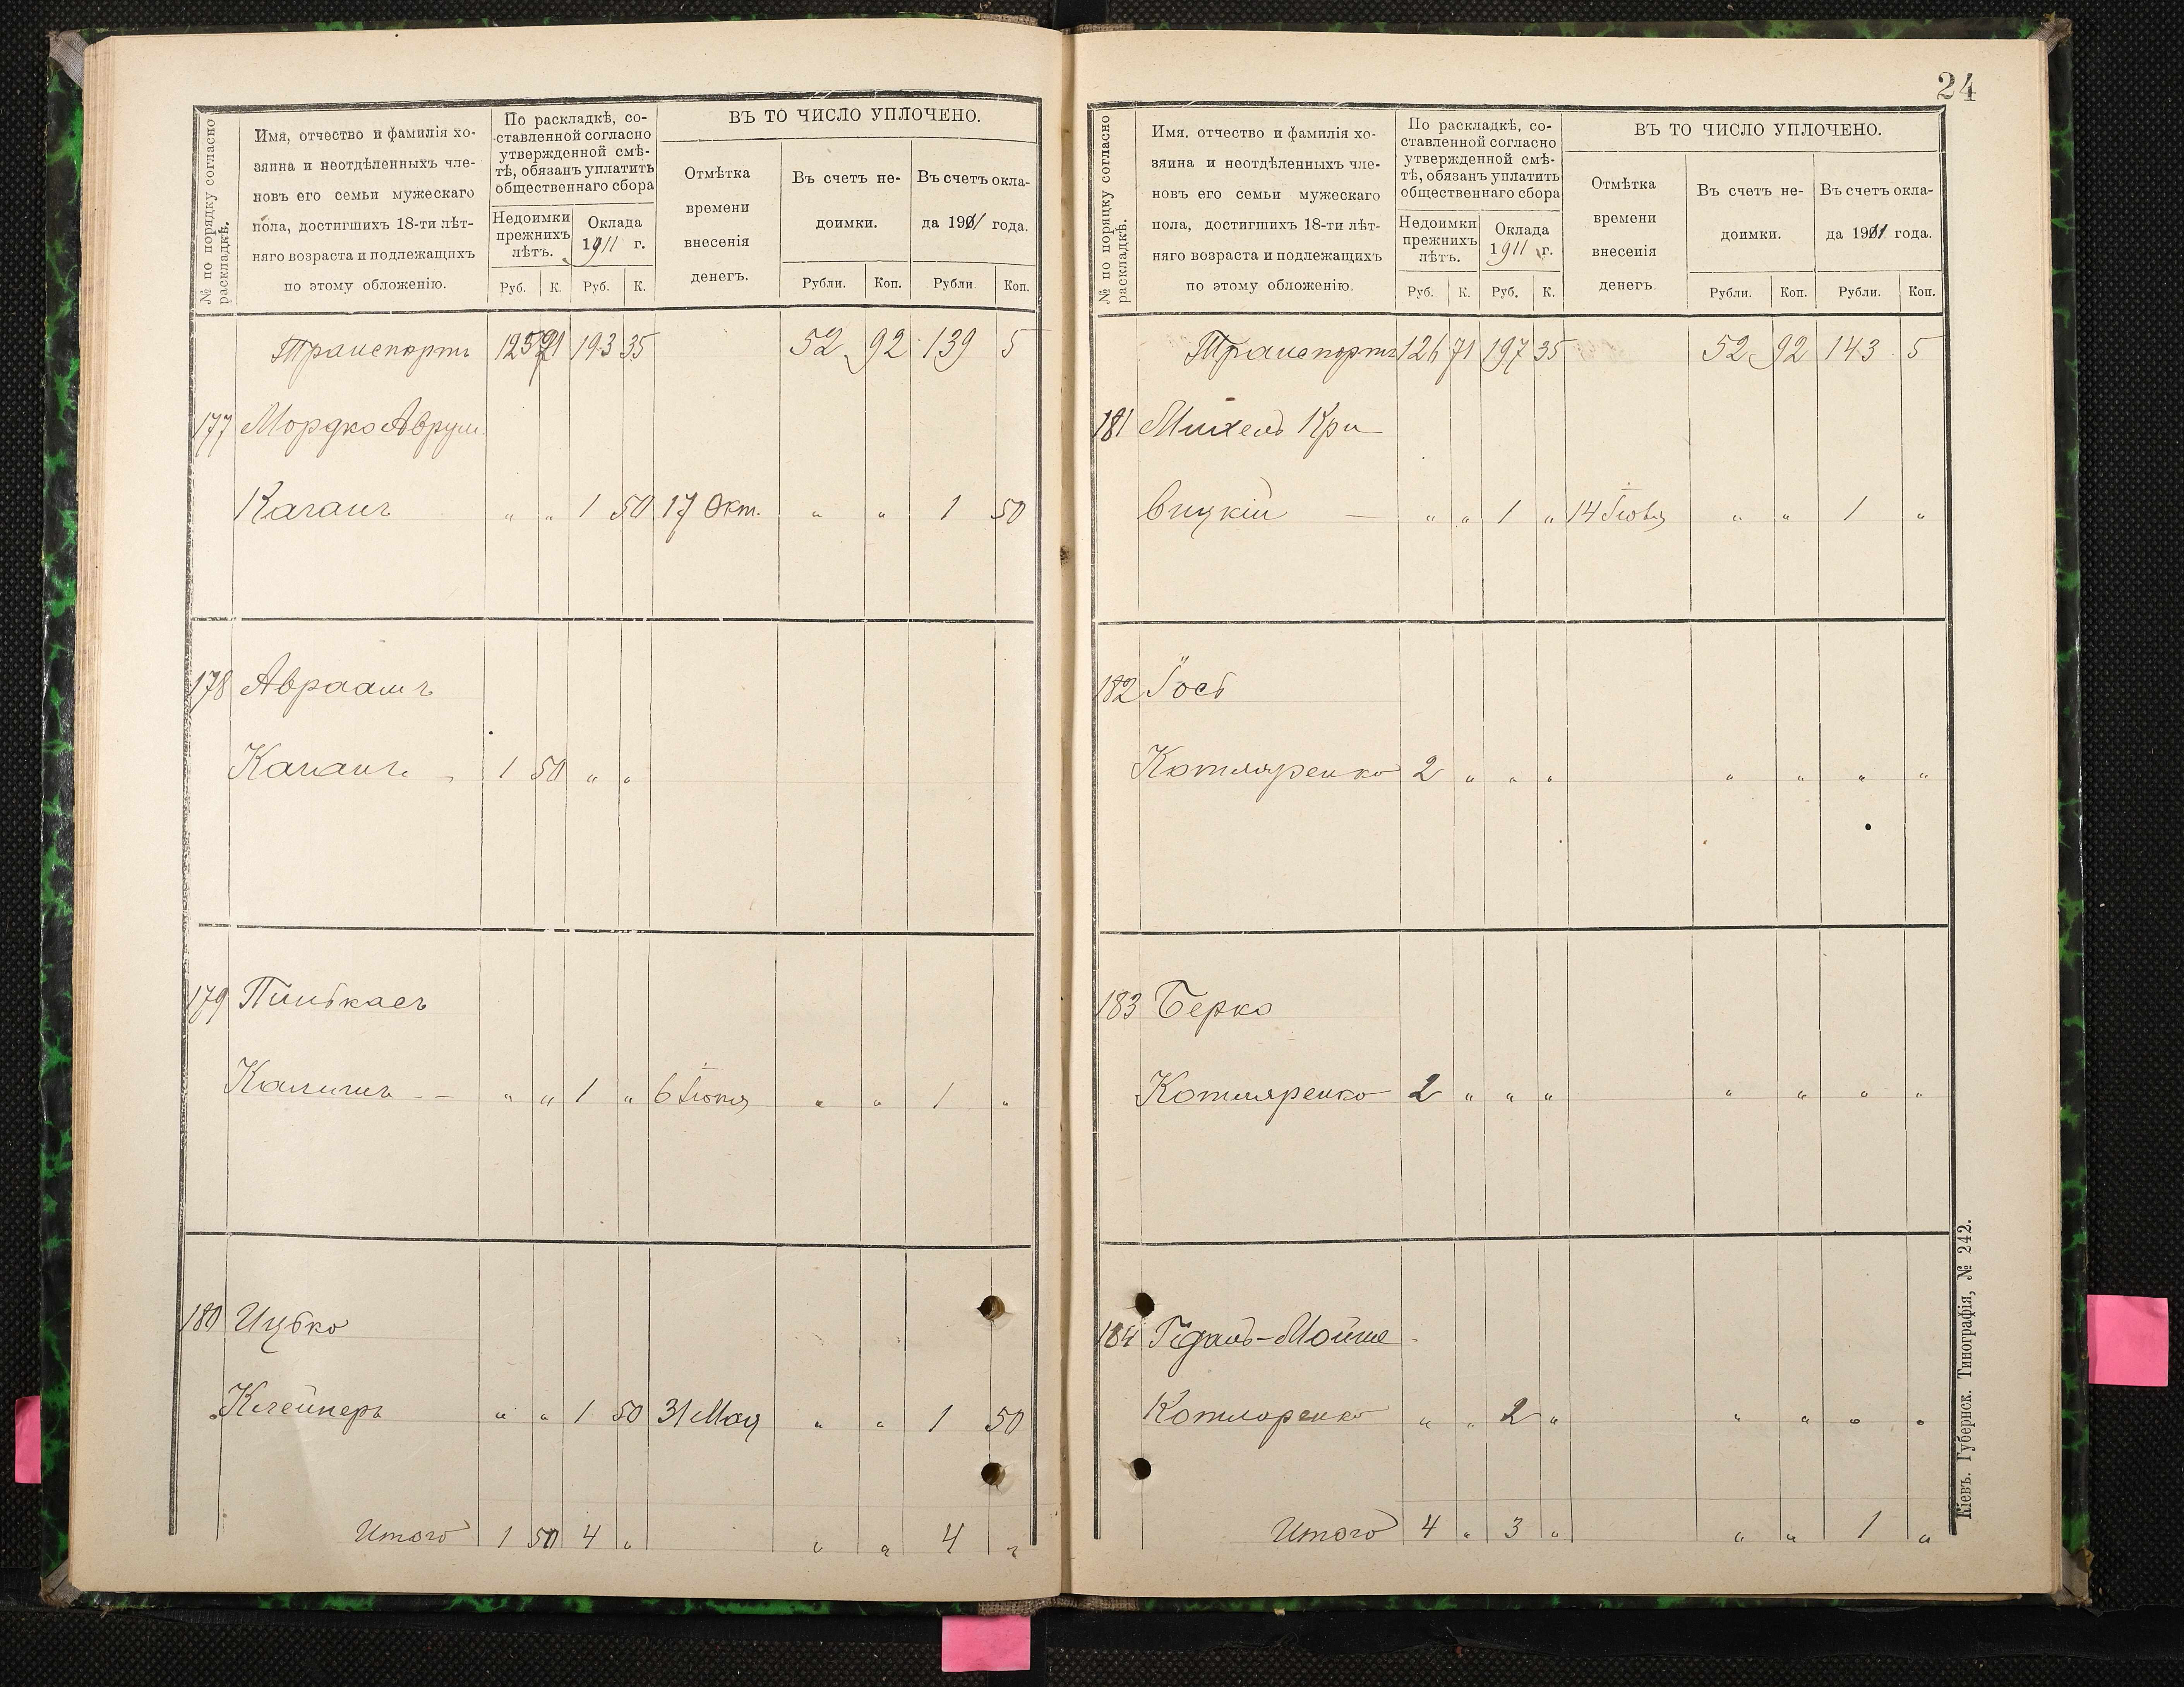 № по порядку согласно раскладкѣ.
Имя, отчество и фамилія хо-
зяина и неотдѣленныхъ чле-
новъ его семьи мужескаго
пола, достигшихъ 18-ти лѣт-
няго возраста и подлежащихъ
по этому обложенію.
По раскладкѣ, со-
ставленной согласно
утвержденной смѣ-
тѣ, обязанъ уплатить
общественнаго сбора
Недоимки прежнихъ лѣтъ.
Оклада 1911 г.
Руб. К. Руб. К.
ВЪ ТО ЧИСЛО УПЛОЧЕНО.
Отмѣтка
времени
внесенія
денегъ.
Въ счетъ не-
доимки.
Рубли. Коп.
Въ счетъ окла-
да 1911 года.
Рубли. Коп.
Транспортъ 125 21 193 35 52 92 139 5
177 Мордко Аврум.
Каганъ " " 1 50 17 Окт. " " 1 50
178 Авраамъ
Каганъ 1 50 " "
179 Пинькасъ
" " 1 " 6 Іюня " " 1 "
180 Ицько
Клейнеръ " " 1 50 31 Мая " " 1 50
Итого 1 50 4 " " " 4 "
24
№ по порядку согласно раскладкѣ.
Имя, отчество и фамилія хо-
зяина и неотдѣленныхъ чле-
новъ его семьи мужескаго
пола, достигшихъ 18-ти лѣт-
няго возраста и подлежащихъ
по этому обложенію.
По раскладкѣ, со-
ставленной согласно
утвержденной смѣ-
тѣ, обязанъ уплатить
общественнаго сбора
Недоимки прежнихъ лѣтъ.
Оклада 1911 г.
Руб. К. Руб. К.
ВЪ ТО ЧИСЛО УПЛОЧЕНО.
Отмѣтка
времени
внесенія
денегъ.
Въ счетъ не-
доимки.
Рубли. Коп.
Въ счетъ окла-
да 1911 года.
Рубли. Коп.
Транспортъ 126 71 197 35 52 92 143 5
181 Михель Кри
вицкій " " 1 " 14 " " 1 "
182 Іось
Котляренко 2 " " " " " " "
183 Берко
Котляренко 2 " " " " " " "
184 Гдаль-Мойше
Котляренко " " 2 " " " " "
Итого 4 " 3 " " " 1 "
Кіевъ. Губернск. Типографія, № 242.